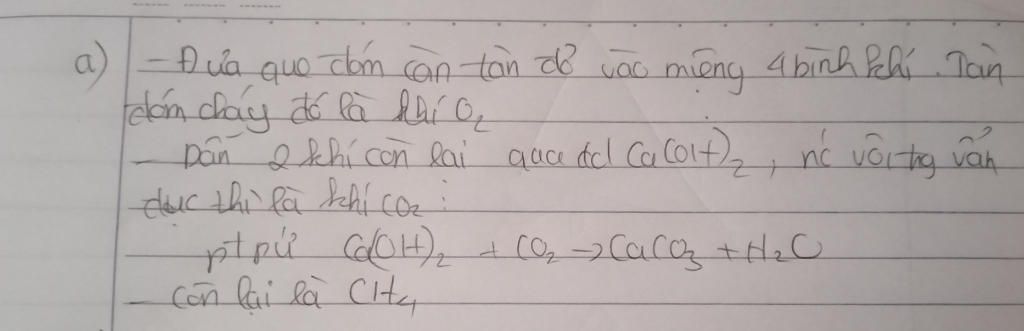 a) - Đưa que đóm còn tàn đỏ vào miệng 4 bình khí. Tàn
đóm cháy đó là khí O2
- Dẫn 2 khí còn lại qua dd Ca(OH)2, nc vôi tg vẩn
đục thì là khí CO2:
ptpứ Ca(OH)2 + CO2 → CaCO3 + H2O
- Còn lại là CH4